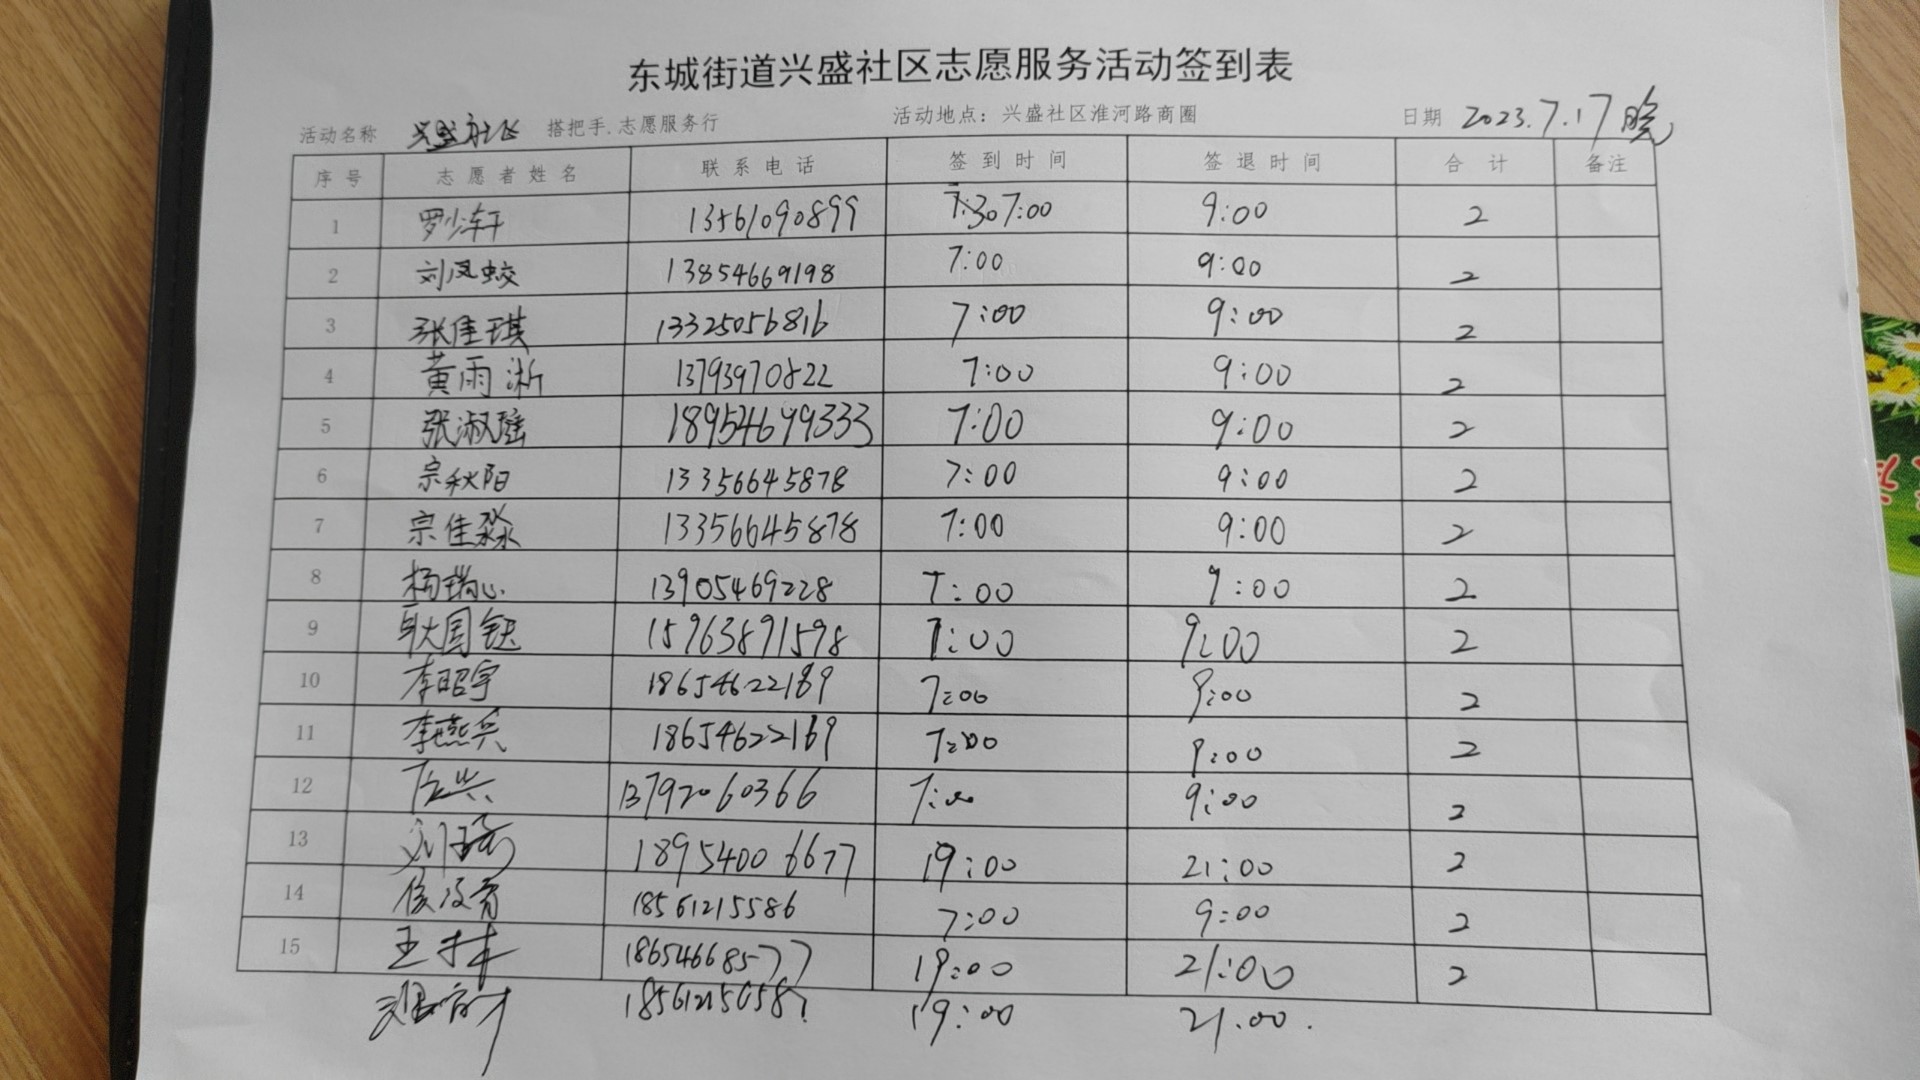 东城街道兴盛社区志愿服务活动签到表
活动名称 兴盛社区 搭把手.志愿服务行 活动地点：兴盛社区淮河路商圈 日期 2023.7.17晚
序号 志愿者姓名 联系电话 签到时间 签退时间 合计 备注
1 罗少轩 13561090899 7:00 9:00 2
2 刘凤蛟 13854669198 7:00 9:00 2
3 张佳琪 13325056816 7:00 9:00 2
4 黄雨淅 13793970822 7:00 9:00 2
5 张淑瑶 18954699333 7:00 9:00 2
6 宗秋阳 13356645878 7:00 9:00 2
7 宗佳淼 13356645878 7:00 9:00 2
8 杨瑞心 13905469228 7:00 9:00 2
9 15963891598 7:00 9:00 2
10 李昭宇 18654622189 7:00 9:00 2
11 李燕兵 18654622169 7:00 9:00 2
12 13792060366 7:00 9:00 2
13 18954006677 19:00 21:00 2
14 18561215586 7:00 9:00 2
15 王林 18654668577 19:00 21:00 2
19:00 21:00.